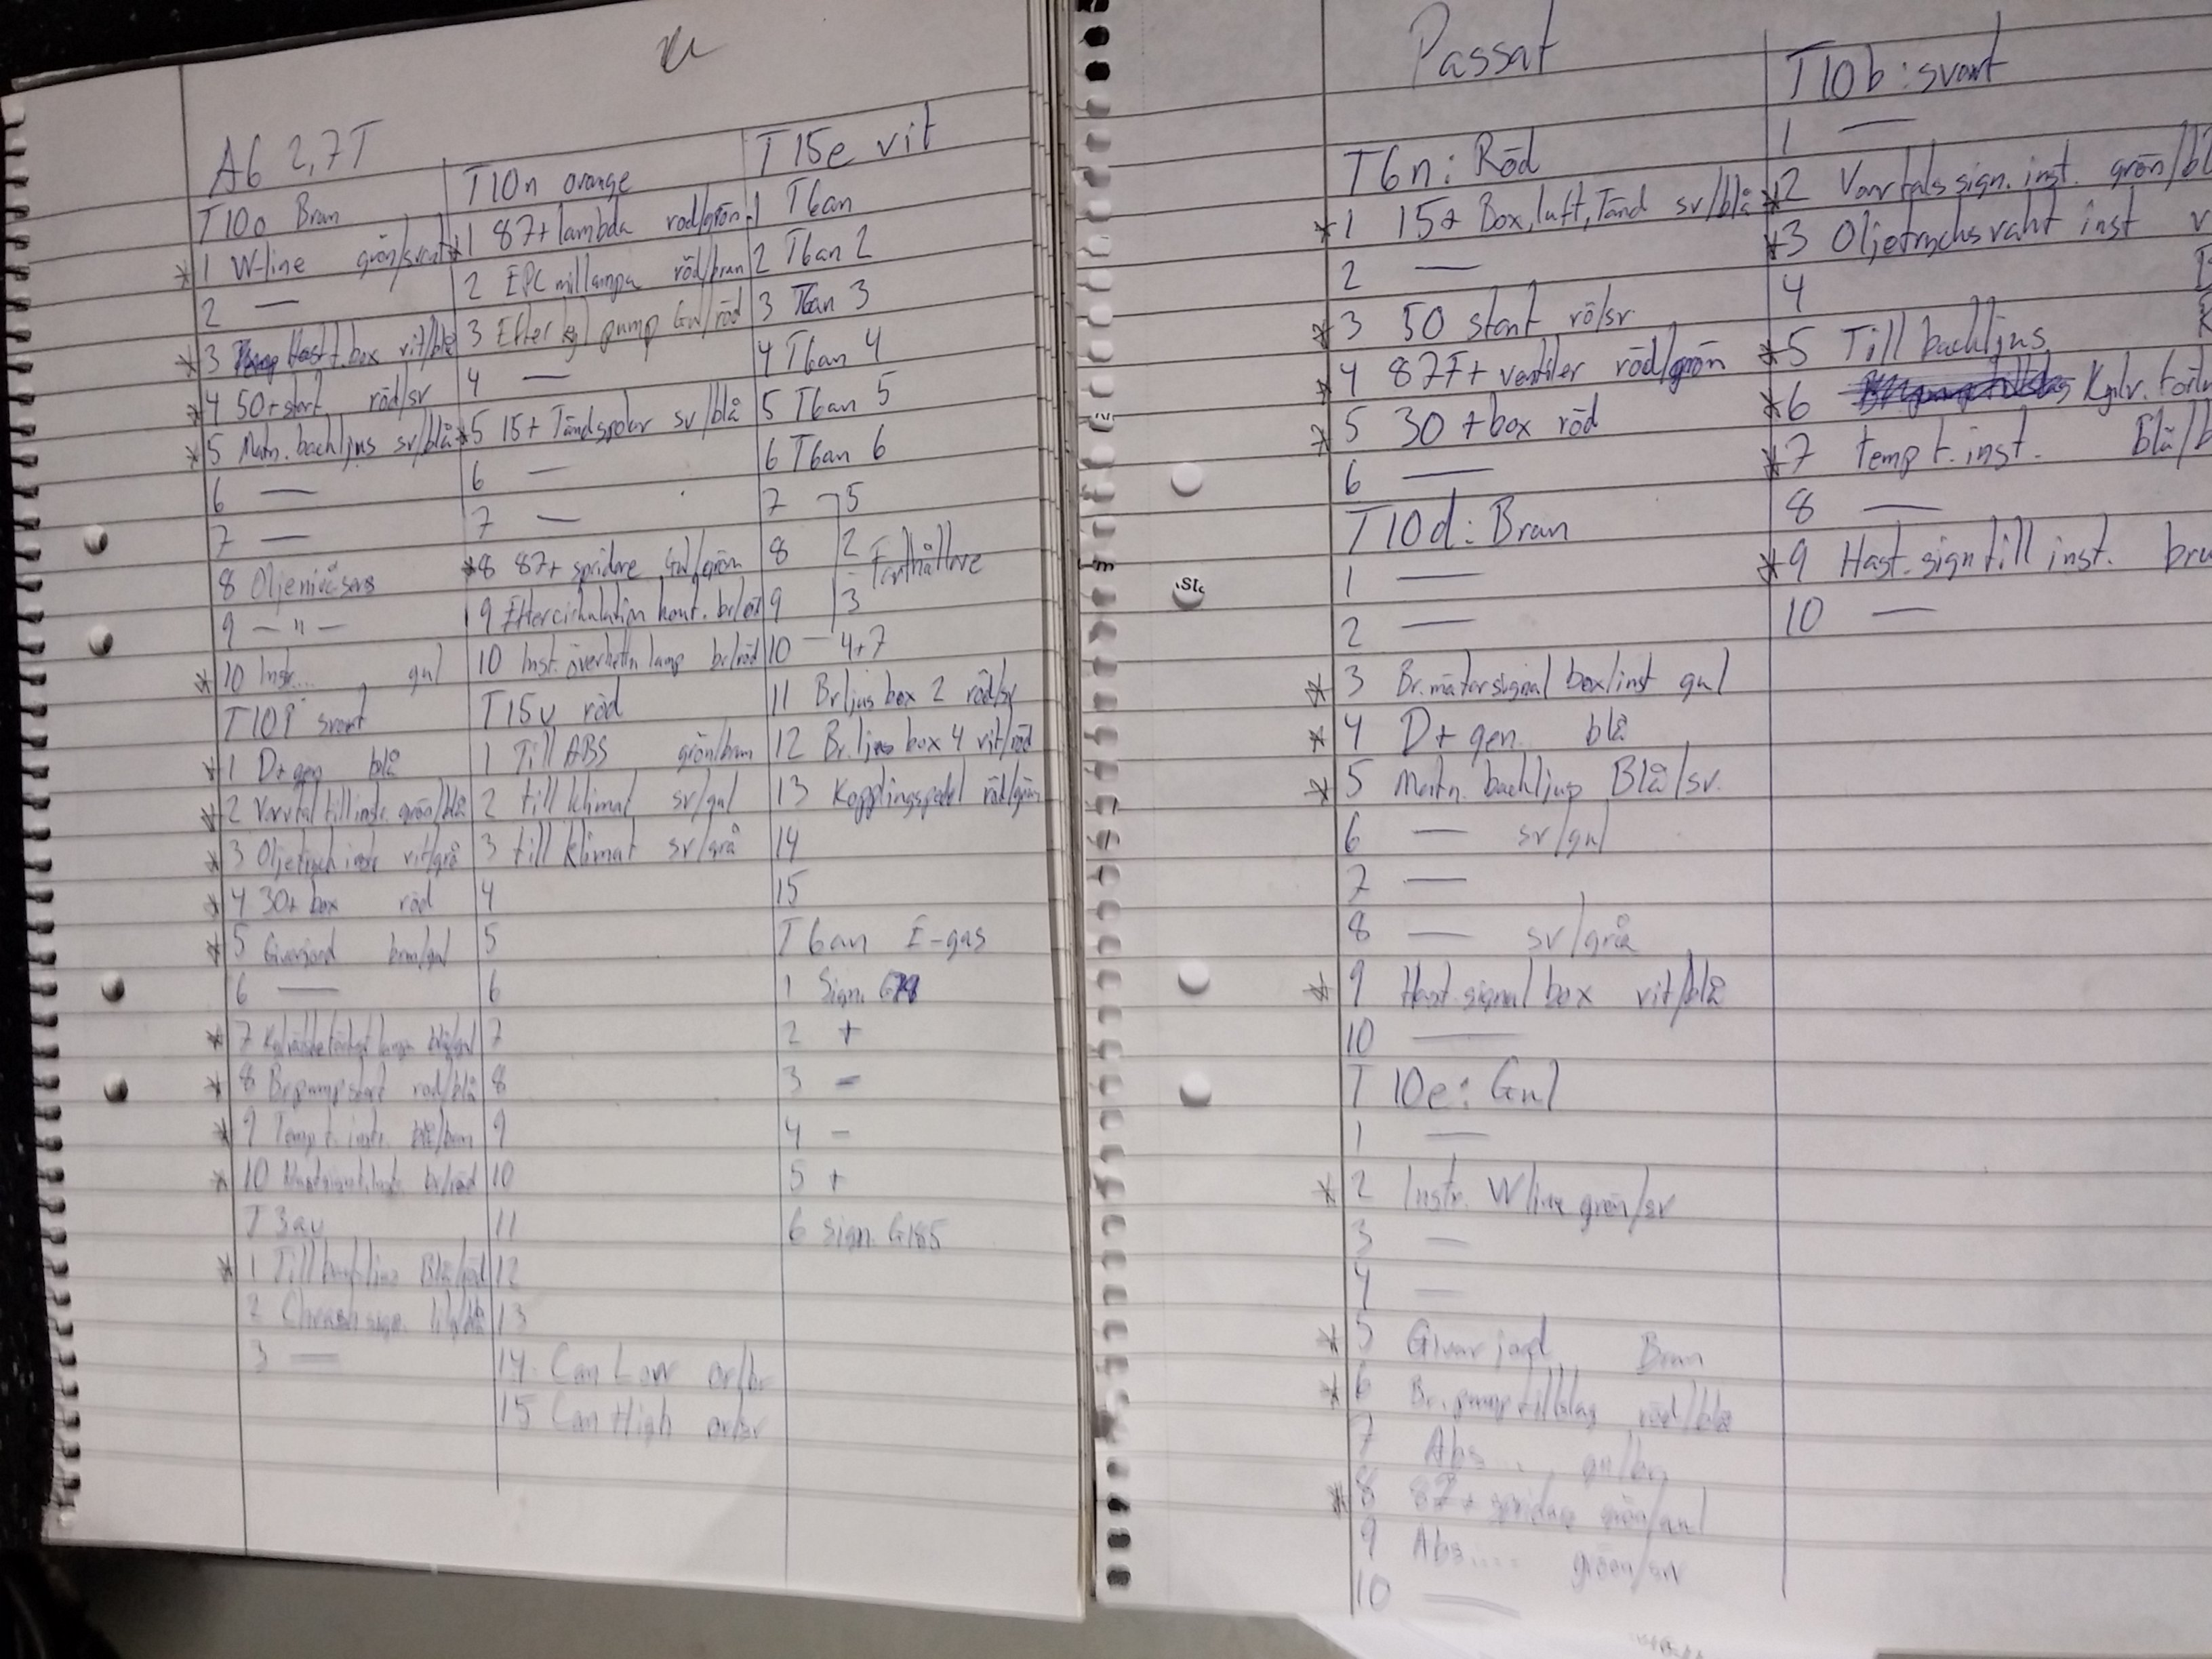 A6 2,7T
T10o Brun
*1 W-line grön/svart
2 —
*3 Hast t. box vit/blå
*4 50+start röd/sv
*5 Matn. backljus sv/blå
6 —
7 —
8 Oljenivåsens
9 — " —
*10 Instr... gul
T10P svart
*1 D+gen blå
*2 Varvtal till instr. grön/blå
*3 Oljetryck instr vit/grå
*4 30+ box röd
*5 Givarjord brun/gul
6 —
*7 lampa blå/gul
*8 Br.pump start röd/blå
*9 Temp t. instr. blå/brun
*10 br/röd
T3au
*1 Till backljus Blå/röd
2 Chrash sign.
3 —
T10n orange
*1 87+ lambda röd/grön
2 EPC millampa röd/brun
3 Efter kyl pump Gul/röd
4 —
*5 15+ Tändspolar sv/blå
6 —
7 —
*8 87+ spridare Gul/grön
9 Eftercirkulation kont.
10 Inst. överhettn lamp br/röd
T15v röd
1 Till ABS grön/brun
2 till klimat sv/gul
3 till klimat sv/grå
4
5
6
7
8
9
10
11
12
13
14 Can Low or/br
15 Can High or/sv
T15e vit
1 T6an
2 T6an 2
3 T6an 3
4 T6an 4
5 T6an 5
6 T6an 6
7 5
8 2 Farthållare
9 3
10 — 4+7
11 Br ljus box 2 röd/sv
12 Br. ljus box 4 vit/röd
13 Kopplingspedal röd/grön
14
15
T6an E-gas
1 Sign. G79
2 +
3 -
4 -
5 +
6 sign. G185
Passat
T6n: Röd
*1 15+ Box, luft, Tänd sv/blå
2 —
*3 50 start rö/sv
*4 87F+ ventiler röd/grön
*5 30+box röd
6 —
T10d: Brun
1 —
2 —
*3 Br.mätarsignal box/inst gul
*4 D+ gen. blå
*5 Matn. backljus Blå/sv.
6 — sv/gul
7 —
8 — sv/grå
*9 Hast signal box vit/blå
10 —
T10e: Gul
1 —
*2 Instr. W line grön/sv
3 —
4 —
*5 Givarjord Brun
*6 Br.pump tillslag röd/blå
7 Abs...
*8 87+ spridare grön/gul
9 Abs.... grön/sv
10 —
T10b: svart
1 —
*2 Varvtals sign. inst. grön/bl
*3 Oljetrycksvakt inst v
4
*5 Till backljus
*6 Kylv.
*7 temp t. inst. Blå/b
8 —
*9 Hast. sign till inst. bru
10 —